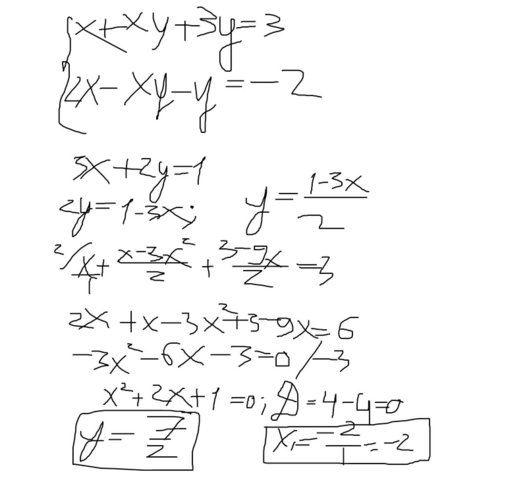 x+xy+3y=3
2x-xy-y=-2
3x+2y=1
2y=1-3x; y=(1-3x)/2
2/ x/1+(x-3x²)/2+(3-9x)/2=3
2x+x-3x²+3-9x=6
-3x²-6x-3=0 /-3
x²+2x+1=0; D=4-4=0
y=7/2 x₁=-2/1=-2